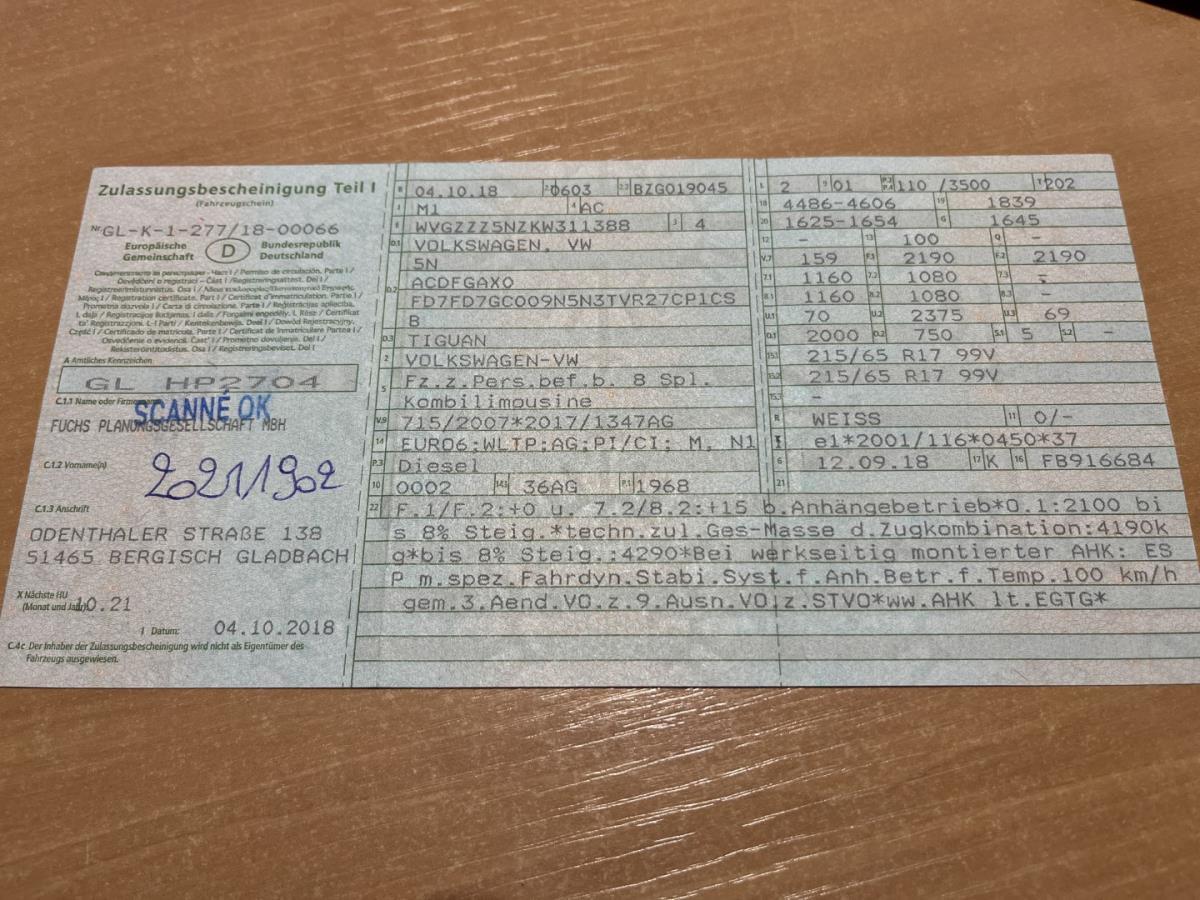 Zulassungsbescheinigung Teil I
(Fahrzeugschein)
Nr. GL-K-1-277/18-00066
Europäische Gemeinschaft D Bundesrepublik Deutschland
A Amtliches Kennzeichen
GL HP2704
C.1.1 Name oder Firmenname
SCANNÉ OK
FUCHS PLANUNGSGESELLSCHAFT MBH
C.1.2 Vorname(n)
20211902
C.1.3 Anschrift
ODENTHALER STRAßE 138
51465 BERGISCH GLADBACH
X Nächste HU
(Monat und Jahr) 10.21
I Datum: 04.10.2018
C.4c Der Inhaber der Zulassungsbescheinigung wird nicht als Eigentümer des
Fahrzeugs ausgewiesen.
B 04.10.18 2.1 0603 2.2 BZG019045
J M1 4 AC
E WVGZZZ5NZKW311388 3 4
D.1 VOLKSWAGEN, VW
5N
D.2 ACDFGAX0
FD7FD7GC009N5N3TVR27CP1CS
B
D.3 TIGUAN
2 VOLKSWAGEN-VW
5 Fz.z.Pers.bef.b. 8 Spl.
Kombilimousine
V.9 715/2007*2017/1347AG
14 EURO6;WLTP;AG;PI/CI; M, N1
P.3 Diesel
10 0002 14.1 36AG P.1 1968
L 2 9 01 P.2 P.4 110 /3500 T 202
18 4486-4606 19 1839
20 1625-1654 G 1645
12 - 13 100 Q -
V.7 159 F.1 2190 F.2 2190
7.1 1160 7.2 1080 7.3 -
8.1 1160 8.2 1080 8.3 -
U.1 70 U.2 2375 U.3 69
O.1 2000 O.2 750 S.1 5 S.2 -
15.1 215/65 R17 99V
15.2 215/65 R17 99V
15.3 -
R WEISS 11 0/-
K e1*2001/116*0450*37
6 12.09.18 17 K 16 FB916684
21
22 F.1/F.2:+0 u. 7.2/8.2:+15 b.Anhängebetrieb*O.1:2100 bi
s 8% Steig.*techn.zul.Ges-Masse d.Zugkombination:4190k
g*bis 8% Steig.:4290*Bei werkseitig montierter AHK: ES
P m.spez.Fahrdyn.Stabi.Syst.f.Anh.Betr.f.Temp.100 km/h
gem.3.Aend.VO.z.9.Ausn.VO z.STVO*ww.AHK lt.EGTG*